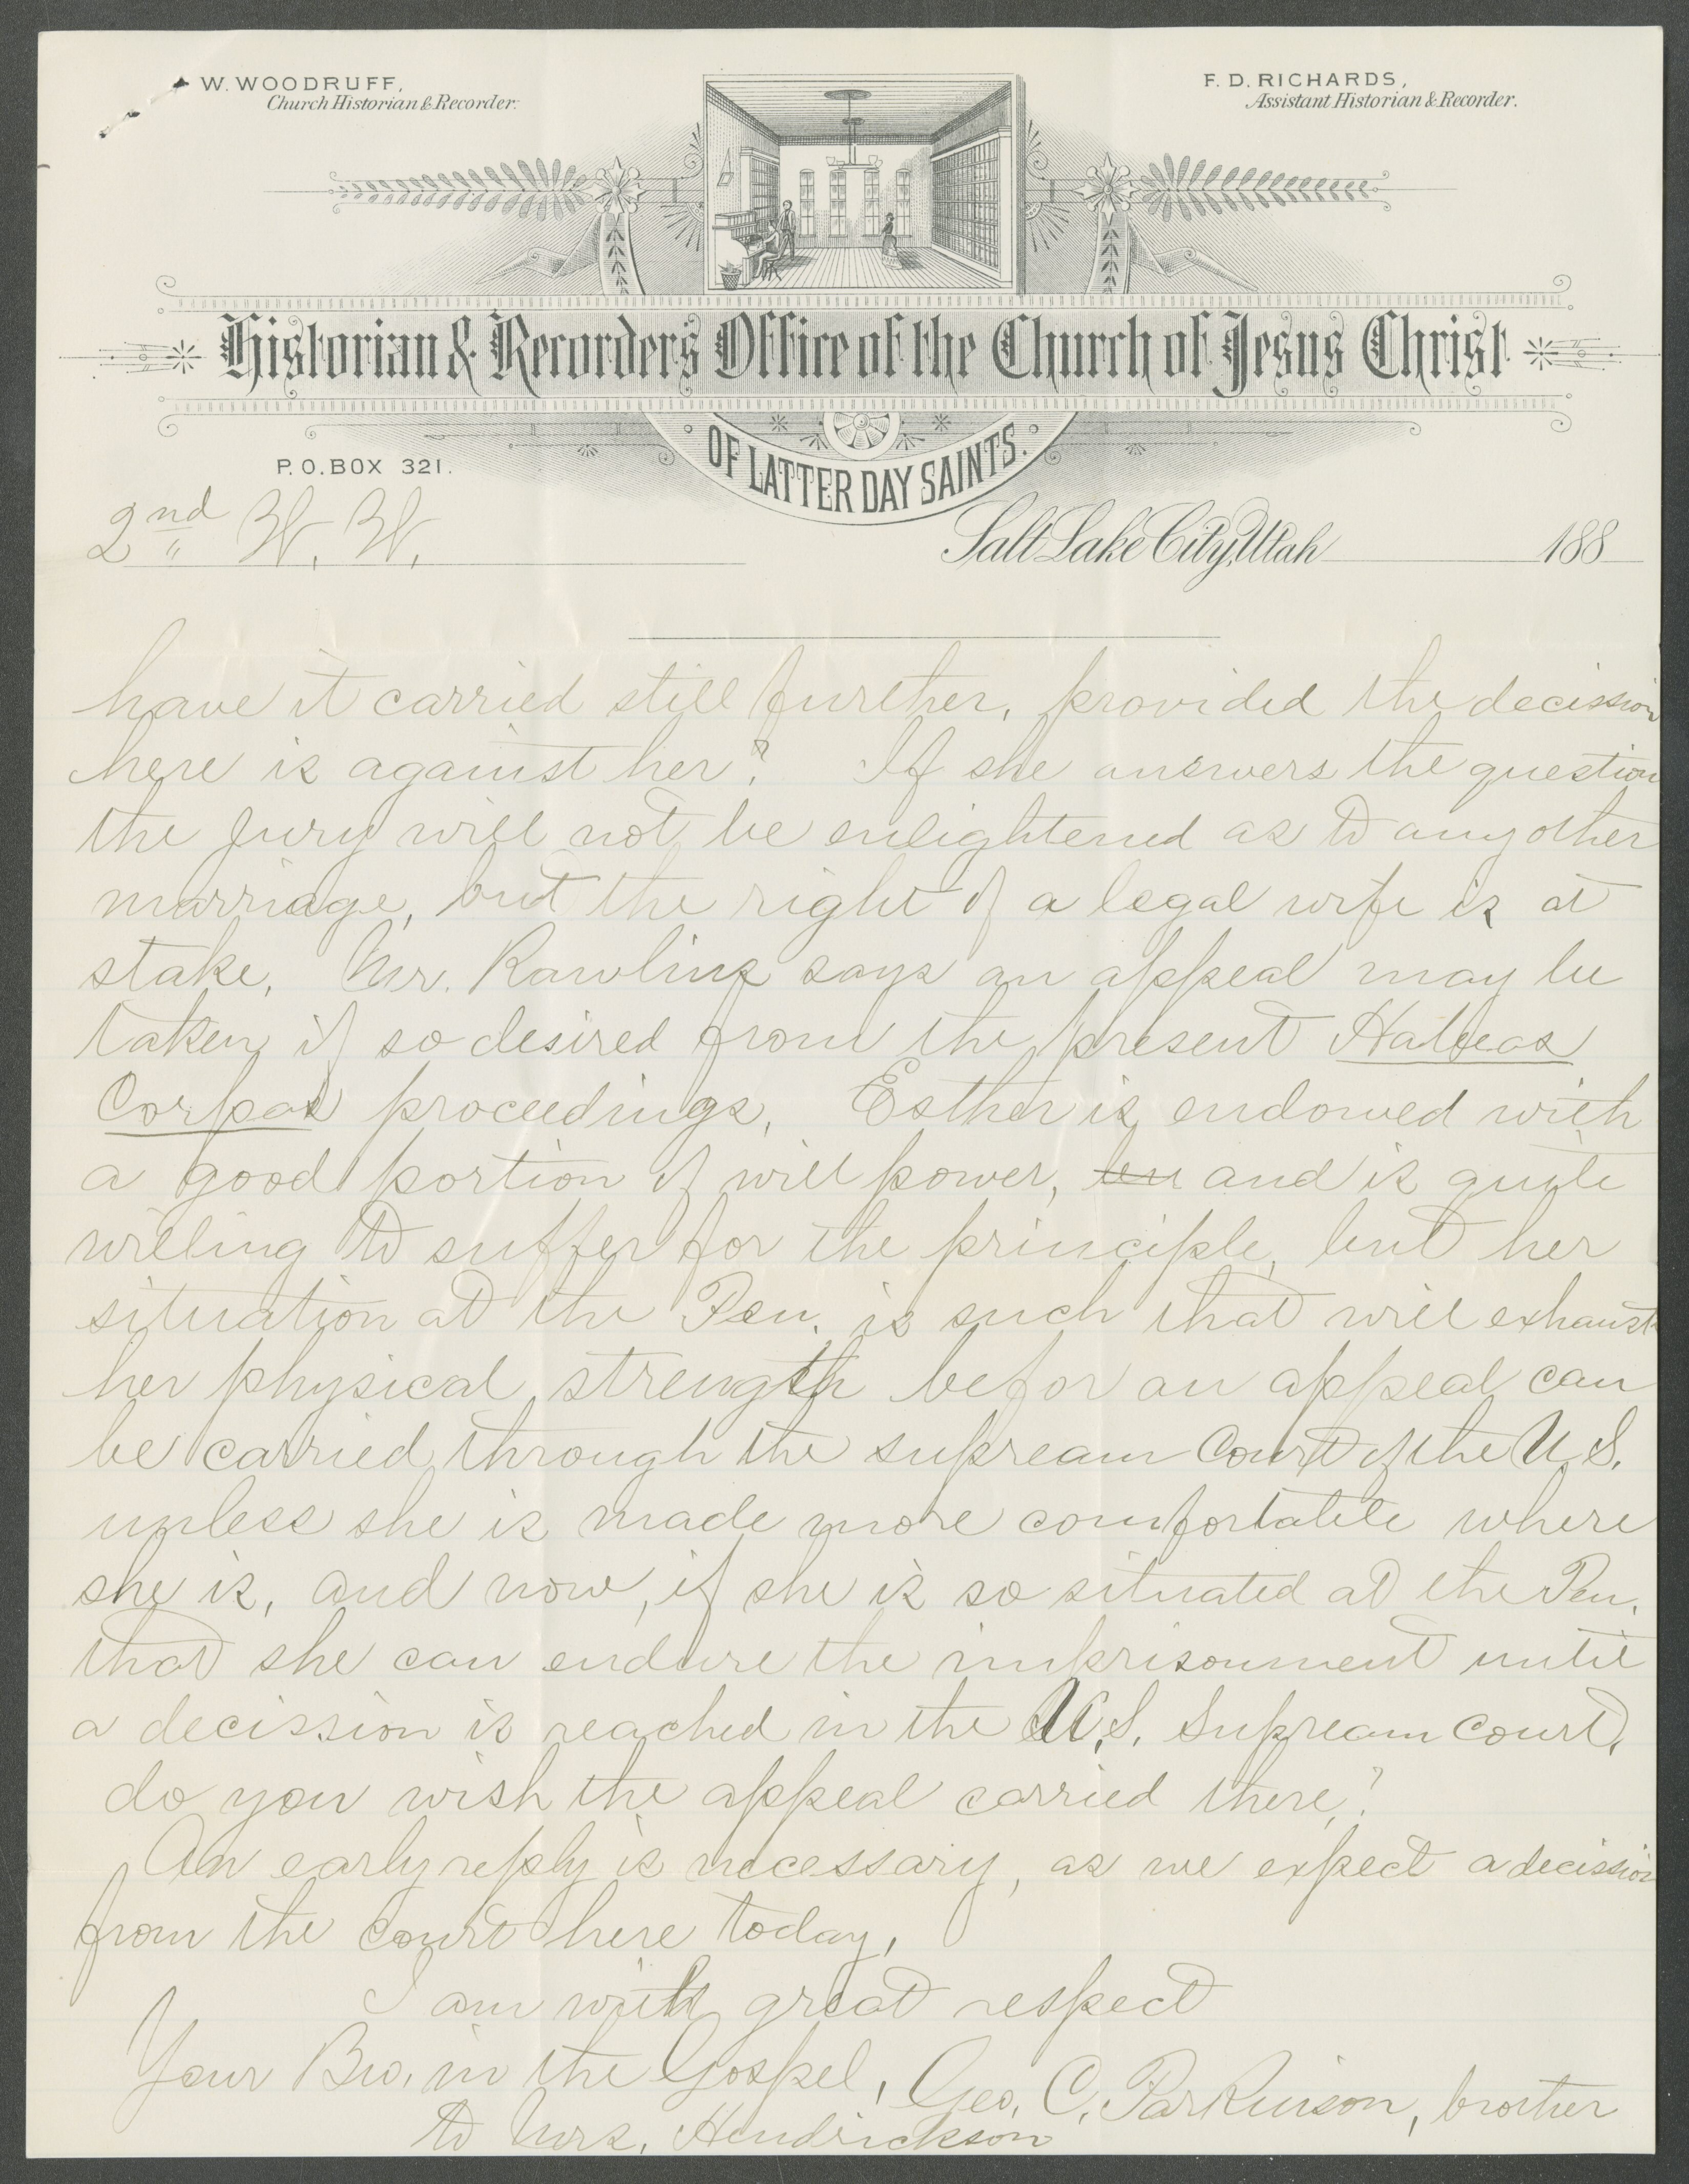 W. WOODRUFF,
Church Historian & Recorder.
F. D. RICHARDS,
Assistant Historian & Recorder.
Historian & Recorder's Office of the Church of Jesus Christ
OF LATTER DAY SAINTS.
P. O. BOX 321.
2nd W. W.
Salt Lake City, Utah 188
have it carried still further, provided the decission
here is against her? If she answers the question
the jury will not be enlightened as to any other
marriage, but the right of a legal wife is at
stake. Mr. Rawlins says an appeal may be
taken if so desired from the present Habeas
Corpas proceedings. Esther is endowed with
a good portion of will power, and is quite
willing to suffer for the principle, but her
situation at the Pen. is such that will exhaust
her physical strength befor an appeal can
be carried through the supream Court of the U.S.
unless she is made more comfortable where
she is, and now, if she is so situated at the Pen.
that she can endure the imprisonment until
a decission is reached in the U.S. Supream Court,
do you wish the appeal carried there?
An early reply is necessary, as we expect a decission
from the court here today,
I am with great respect
Your Bro. in the Gospel, Geo. C. Parkinson, brother
to Mrs. Hendrickson